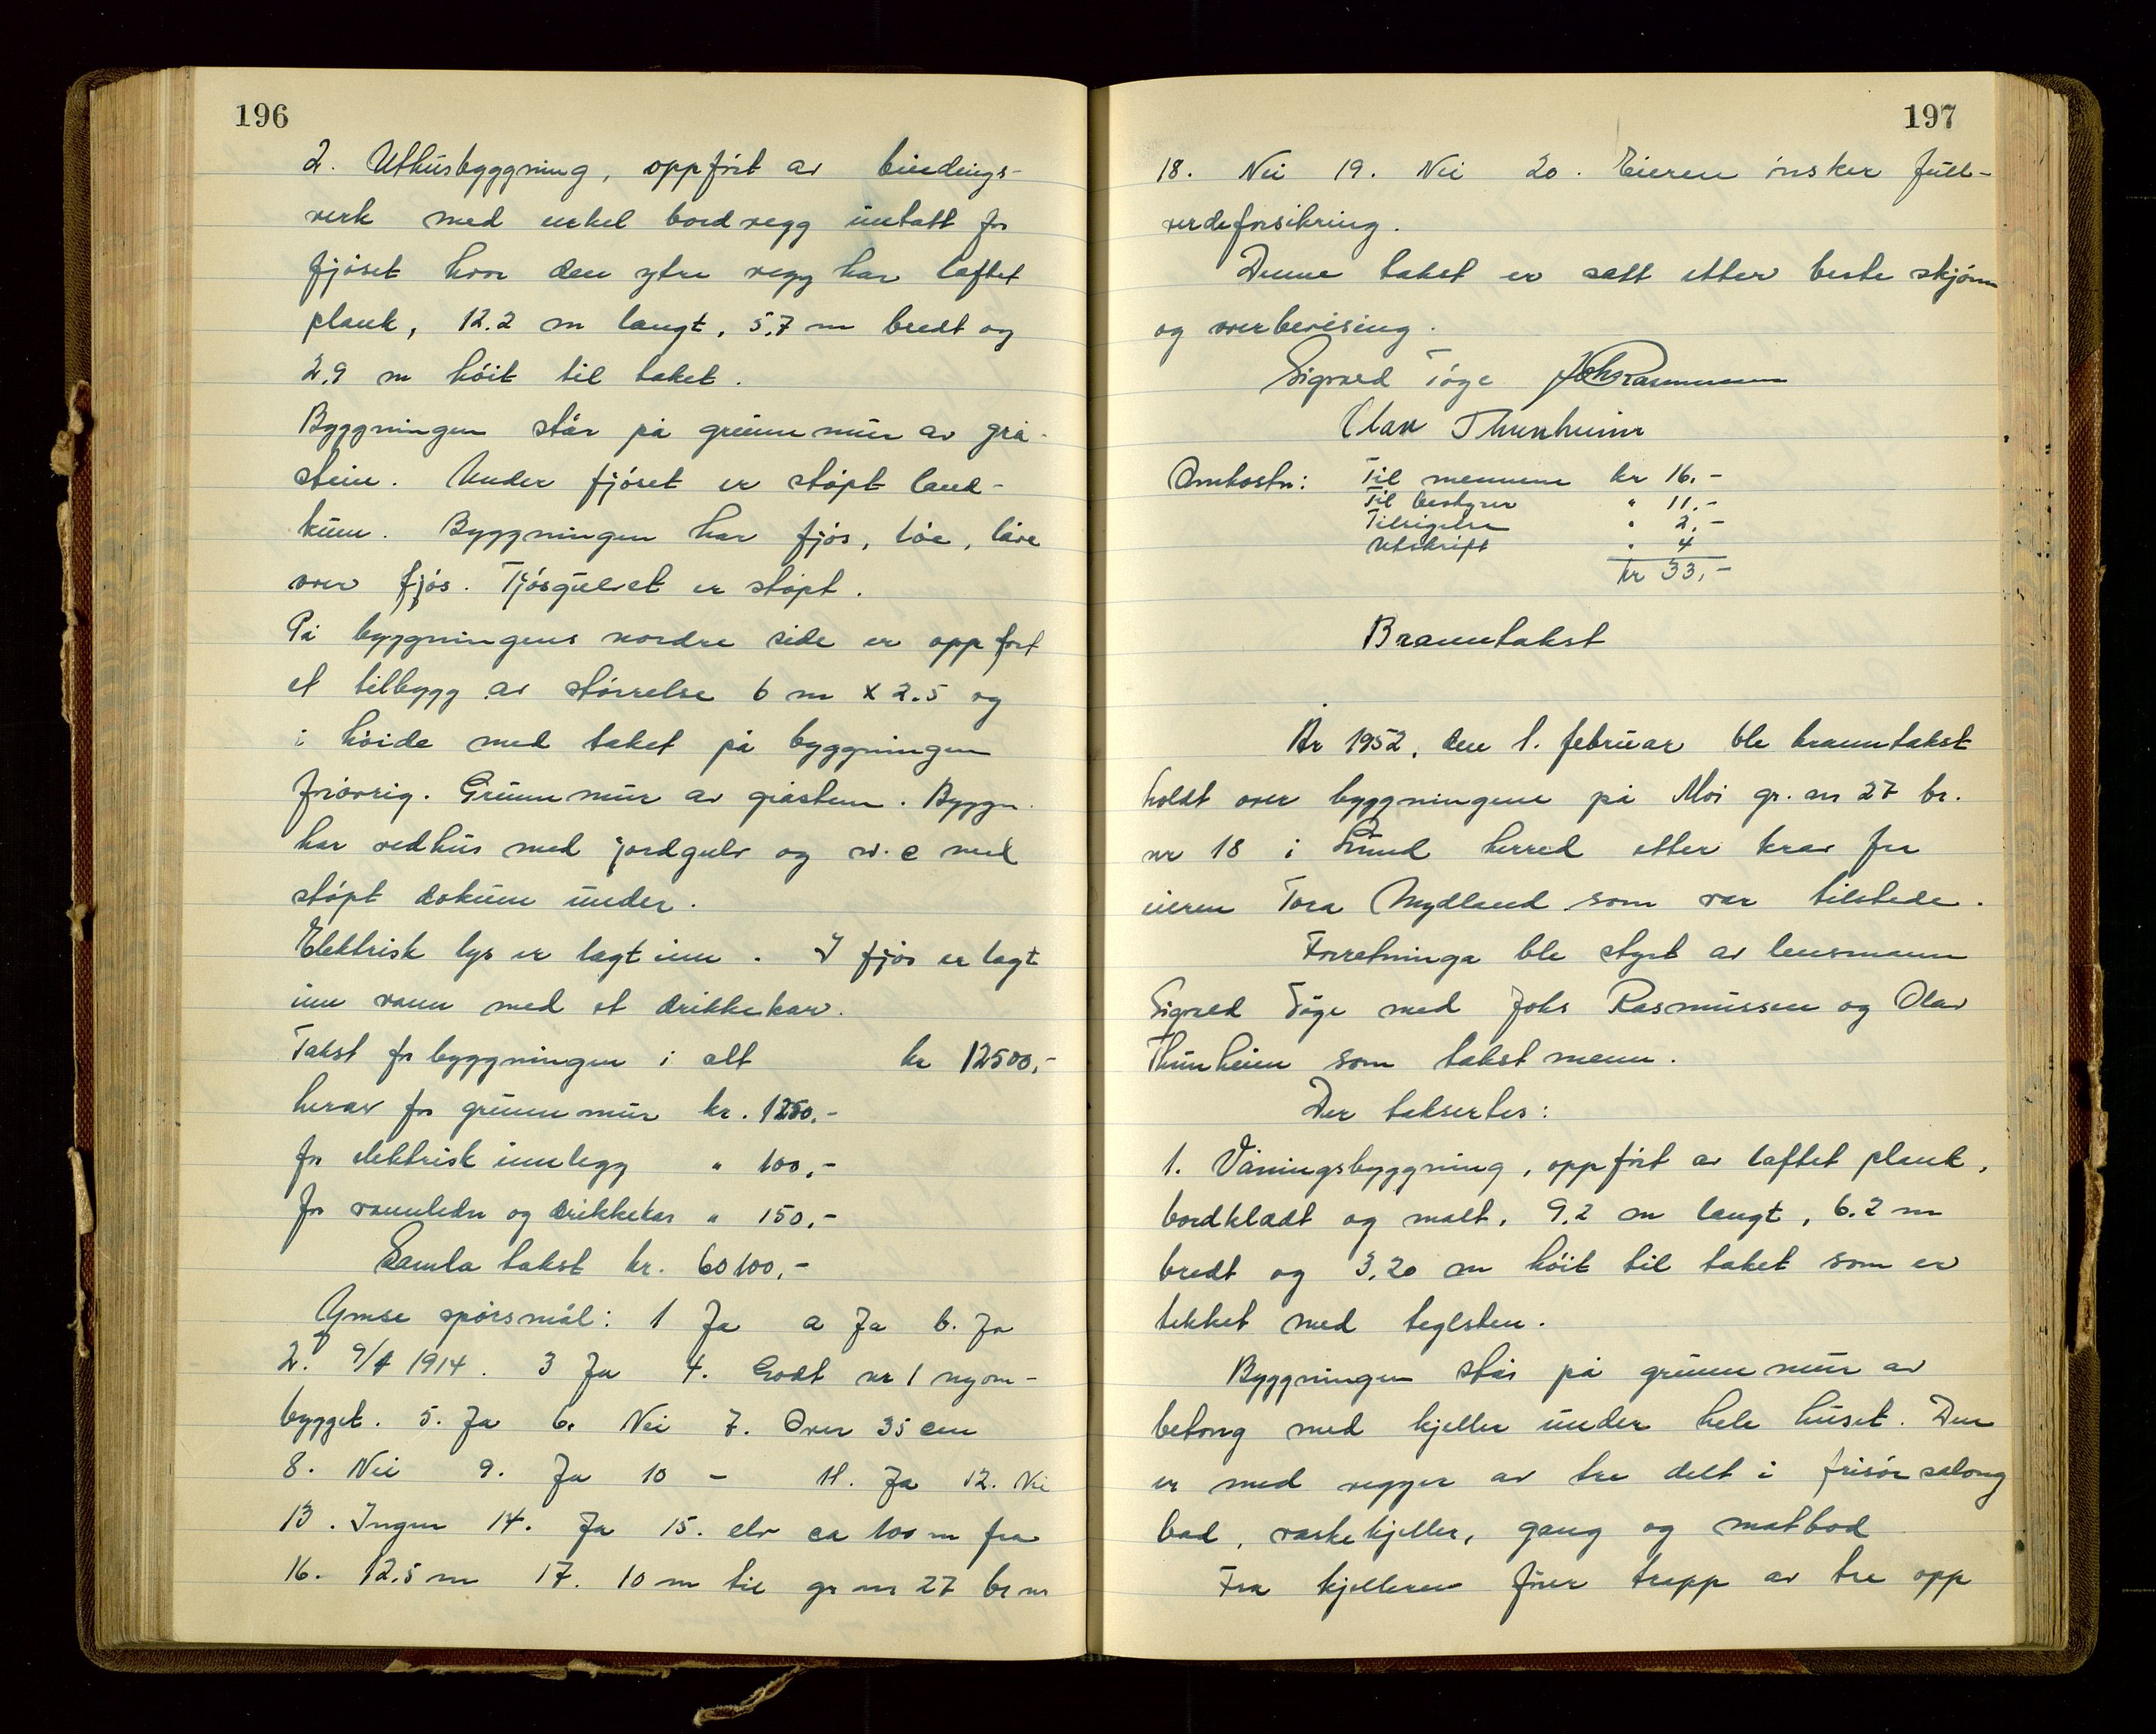 196
2. Uthusbyggning, oppført av bindings-
verk med enkel bordvegg untatt for
fjøset hvor den ytre vegg har laftet
plank, 12.2 m langt, 5,7 m bredt og
2,9 m høit til taket.
Byggningen står på grunnmur av grå-
stein. Under fjøset er støpt land-
kum. Byggningen har fjøs, løe, låve
over fjøs. Fjøsgulvet er støpt.
På byggningens nordre side er oppført
et tilbygg av størrelse 6 m x 2.5 og
i høide med taket på byggningen
forøvrig. Grunnmur av gråstein. Byggn.
har vedhus med jordgulv og w.c med
støpt dokum under.
Elektrisk lys er lagt inn. I fjøs er lagt
inn vann med et drikkekar.
Takst for byggningen i alt kr 12500,-
herav for grunnmur kr. 1250,-
for elektrisk innlegg " 100,-
for vannledn og drikkekar " 150,-
Samla takst kr. 60100,-
Ymse spørsmål: 1 Ja a Ja b. Ja
2. 9/4 1914. 3 Ja 4. Godt nr 1 nyom-
bygget. 5. Ja 6. Nei 7. Over 35 cm
8. Nei 9. Ja 10 - 11. Ja 12. Nei
13. Ingen 14. Ja 15. elv ca 100 m fra
16. 12,5 m 17. 10 m til gr nr 27 br nr
197
18. Nei 19. Nei 20. Eieren ønsker full-
verdeforsikring.
Denne takst er satt etter beste skjønn
og overbevising.
Sigvald Tøge Johs Rasmussen
Olav Thunheim
Omkostn: Til mennene kr 16,-
Til bestyrer " 11,-
Tilsigelse " 2,-
Utskrift " 4
kr 33,-
Branntakst
År 1952, den 1. februar ble branntakst
holdt over byggningene på Moi gr. nr 27 br.
nr 18 i Lund herred etter krav fra
eieren Tora Mydland som var tilstede.
Forretninga ble styrt av lensmann
Sigvald Tøge med Johs Rasmussen og Olav
Thunheim som takstmenn.
Der taksertes:
1. Våningsbyggning, oppført av laftet plank,
bordkledt og malt, 9,2 m langt, 6.2 m
bredt og 3,20 m høit til taket som er
tekket med teglsten.
Byggningen står på grunnmur av
betong med kjeller under hele huset. Den
er med vegger av tre delt i frisørsalong
bad, vaskekjeller, gang og matbod
Fra kjelleren fører trapp av tre opp